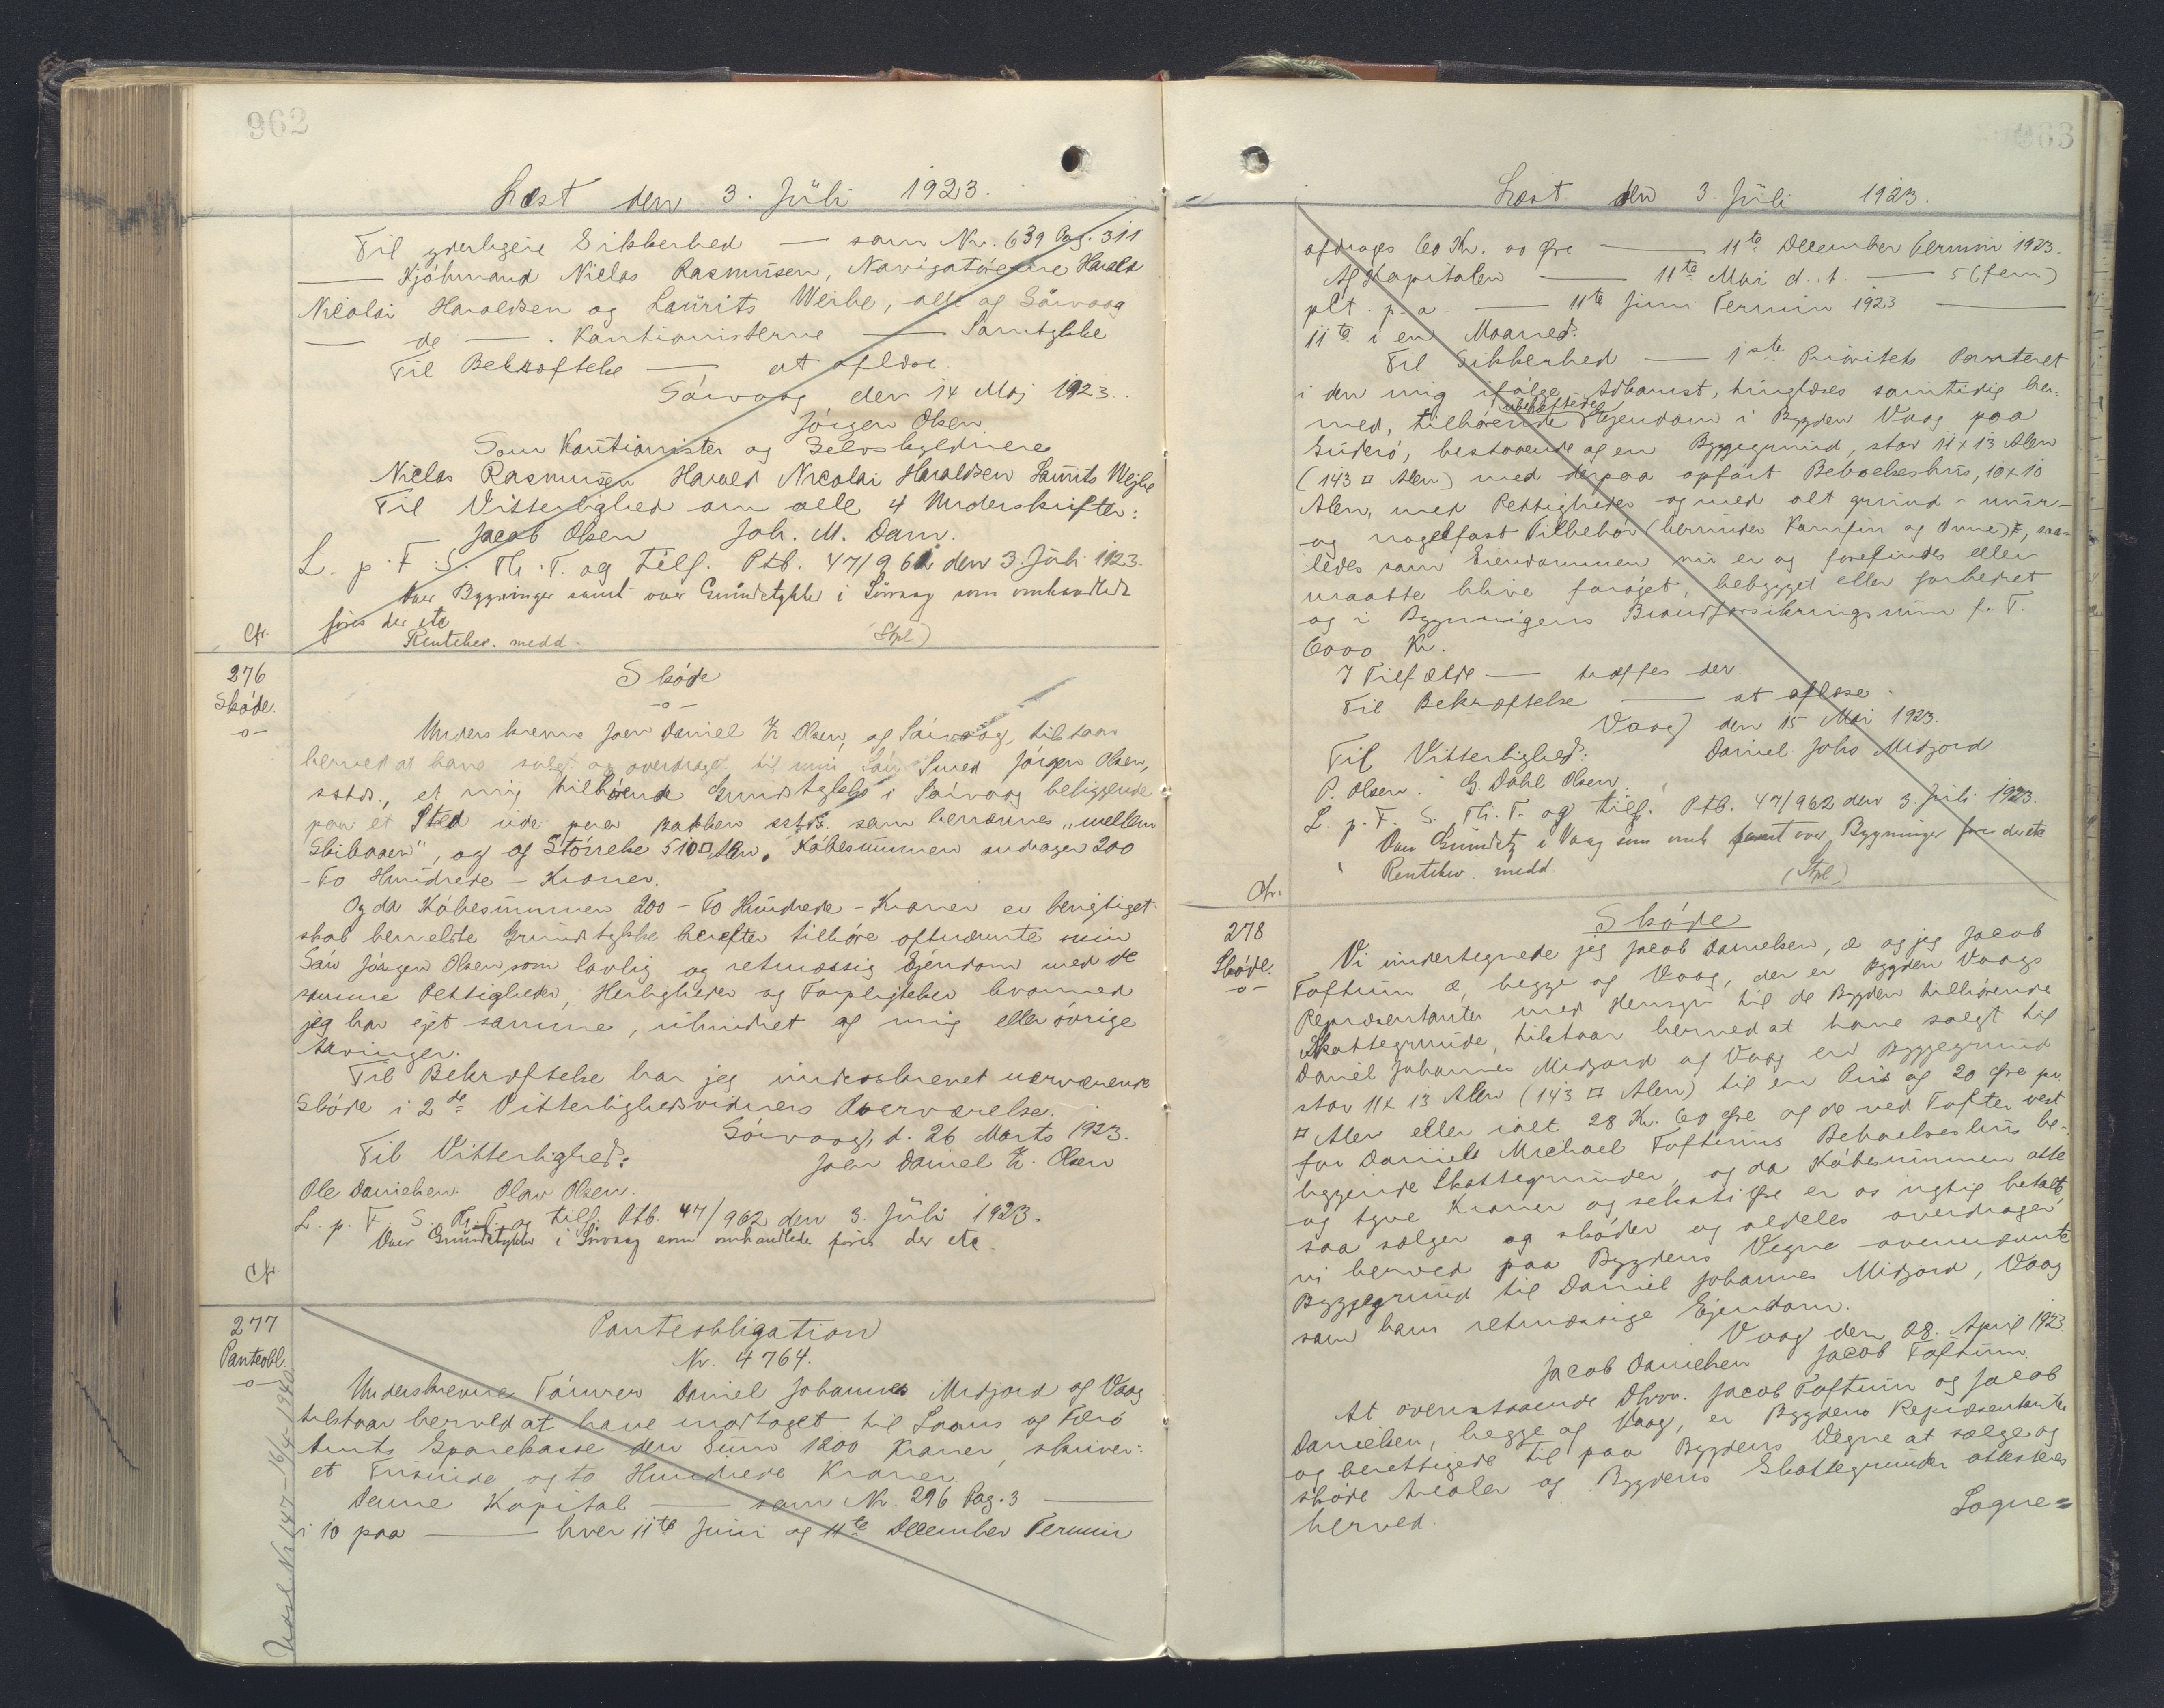 962
Læst den 3. Júli 1923.
Til yderligere Sikkerhed — som Nr. 639 Pag. 311
— Kjöbmand Niclas Rasmússen, Navigatörerne Harald
Nicolai Haraldsen og Laúrits Wejhe, alle af Sörvaag
— de — . Kautionisterne — Samtykke
Til Bekræftelse — at aflæse.
Sörvaag den 14 Maj 1923.
Jörgen Olsen
Som Kautionister og Selvskyldnere
Niclas Rasmússen Harald Nicolai Haraldsen Laúrits Wejhe
Til Vitterlighed om alle 4 Underskrifter:
Jacob Olsen Joh. M. Dam.
L. p. F. S. Th. T. og tilf. Ptb. 47/962 den 3. Júli 1923.
Over Bygninger samt over Grúndstykke i Sörvaag som omhandlede
föres der etc
Cfr. Rentebev. medd. (Stpl)
276
Sköde.
-o-
Sköde
-o-
Underskrevne Joen Daniel K Olsen, af Sörvaag, tilstaar
herved at have solgt og overdraget til min Sön Smed Jörgen Olsen,
sstds., et mig tilhörende Grúndstykke i Sörvaag beliggende
paa et Sted úde paa Bakken sstds. som benævnes „mellem
Skibaaen", og af Störrelse 510 □ Alen. Köbesúmmen andrager 200
- To Húndrede - Kroner.
Og da Köbesúmmen 200 - To Húndrede - Kroner er berigtiget
skal bemeldte Grúndstykke herefter tilhöre oftnævnte min
Sön Jörgen Olsen som lovlig og retmæssig Ejendom med de
samme Rettigheder, Herligheder og Forpligtelser hvormed
jeg har ejet samme, úhindret af mig eller övrige
Arvinger.
Til Bekræftelse har jeg únderskrevet nærværende
Sköde i 2de Vitterlighedsvidners Overværelse.
Sörvaag, d. 26 Marts 1923.
Til Vitterlighed: Joen Daniel K. Olsen
Ole Danielsen. Olav Olsen.
L. p. F. S. Th. T. og tilf. Ptb. 47/962 den 3. Júli 1923.
Over Grúndstykke i Sörvaag som omhandlede föres der etc.
Cfr.
277
Panteobl.
-o-
Panteobligation
Nr. 4764.
Underskrevne Tömrer Daniel Johannes Midjord af Vaag
tilstaar herved at have modtaget til Laans af Færö
Amts Sparekasse den Súm 1200 Kroner, skriver:
et Túsinde og to Húndrede Kroner.
Denne Kapital — som Nr. 296 Pag. 3 —
i 10 paa — hver 11te Juni og 11te December Termin
Udsl. Nr 147 - 16/4 1940
963
Læst den 3. Júli 1923.
afdrages 60 Kr. 00 Öre — 11te December Termin 1923.
Af Kapitalen — 11te Mai d. A. — 5 (fem)
pCt. p. a. — 11te Juni Termin 1923 —
11te i en Maaned.
Til Sikkerhed — 1ste Prioritets Panteret
i den mig ifölge Adkomst, tinglæses samtidig her-
med, tilhörende úbehæftede Ejendom i Bygden Vaag paa
Súderö, bestaaende af en Byggegrúnd, stor 11 x 13 Alen
(143 □ Alen) med derpaa opfört Beboelseshús, 10 x 10
Alen, med Rettigheder og med alt grúnd - múr -
og nagelfast Tilbehör (herúnder Komfúr og Ovne), saa-
ledes som Ejendommen nú er og forefindes eller
maatte blive foröget, bebygget eller forbedret
og i Bygningens Brandforsikringssúm f. T.
6000 Kr.
I Tilfælde — træffes der.
Til Bekræftelse — at aflæse.
Vaag, den 15 Mai 1923.
Til Vitterlighed: Daniel Johs Midjord
P. Olsen. G. Dahl Olsen.
L. p. F. S. Th. T. og tilf. Ptb. 47/962 den 3. Júli 1923.
Over Grúndst. i Vaag som omh samt over Bygninger föres der etc
Cfr. Rentebev. medd. (Stpl)
278
Sköde.
-o-
Sköde
Vi úndertegnede jeg Jacob Danielsen, og jeg Jacob
Toftúm begge af Vaag, der er Bygden Vaags
Repræsentanter med Hensyn til de Bygden tilhörende
Skattegrúnde, tilstaar herved at have solgt til
Daniel Johannes Midjord af Vaag en Byggegrúnd
stor 11 x 13 Alen (143 □ Alen) til en Pris af 20 Öre pr.
□ Alen eller ialt 28 Kr. 60 Öre af de ved Tofter vest
for Daniel Michael Toftúms Beboelseshús be-
liggende Skattegrúnder, og da Köbesúmmen otte
og tyve Kroner og seksti Öre er os rigtig betalt,
saa sælger og sköder og aldeles overdrager
vi herved paa Bygdens Vegne ovennævnte
Byggegrúnd til Daniel Johannes Midjord, Vaag
som hans retmæssige Ejendom.
Vaag den 28. April 1923.
Jacob Danielsen Jacob Toftúm.
At ovenstaaende Dhrr. Jacob Toftúm og Jacob
Danielsen, begge af Vaag, er Bygdens Repræsentanter
og berettigede til paa Bygdens Vegne at sælge og
sköde Arealer af Bygdens Skattegrúnder attesteres
herved.
Sogne=